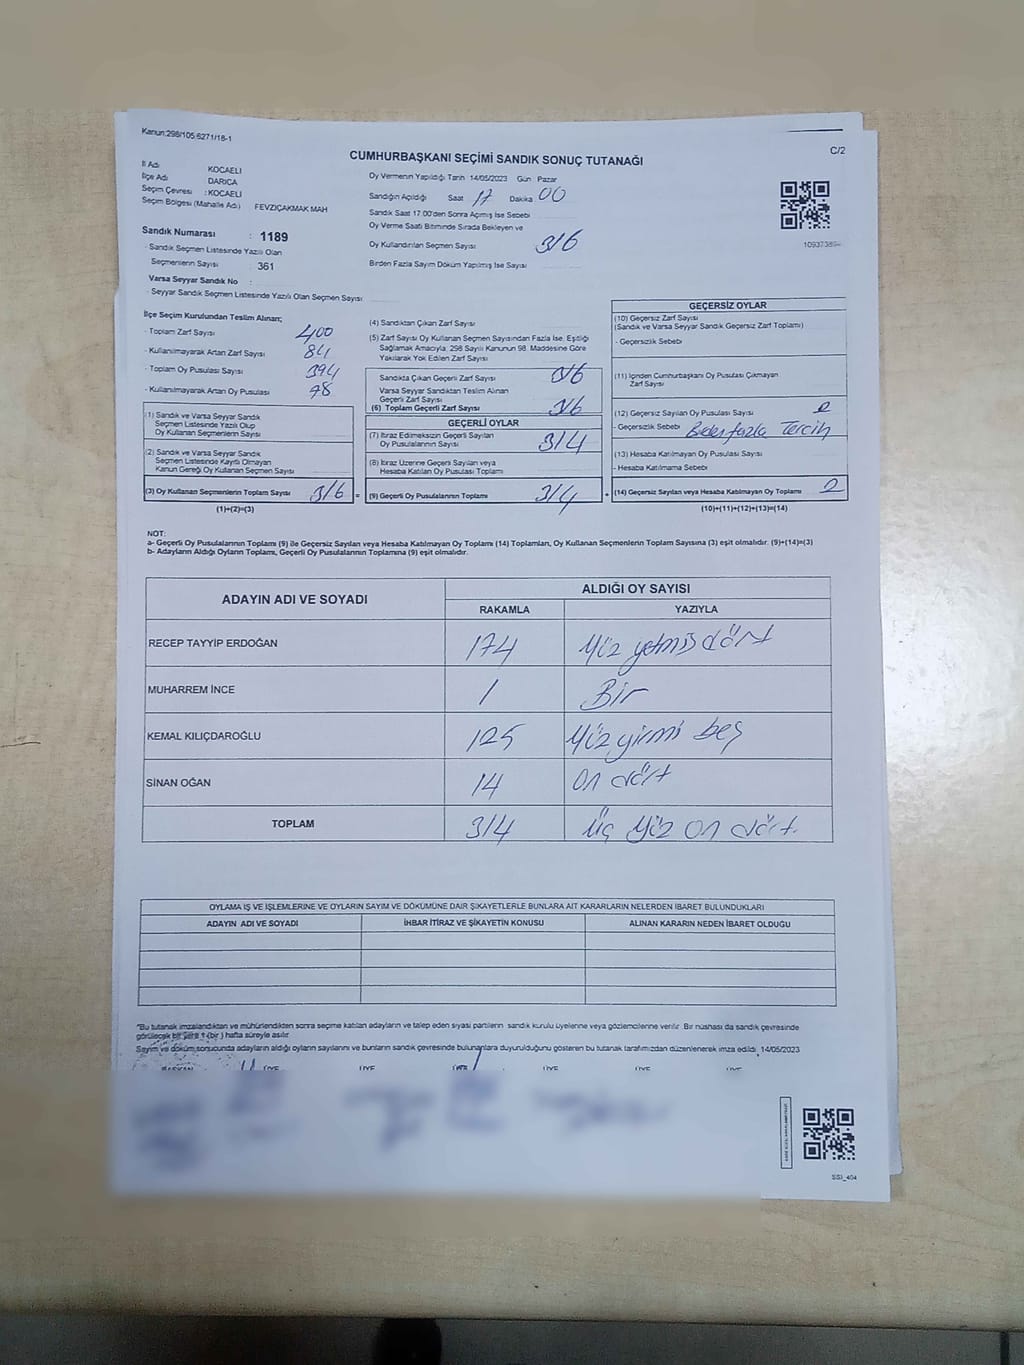 Kanun:298/105;6271/18-1
C/2
CUMHURBAŞKANI SEÇİMİ SANDIK SONUÇ TUTANAĞI
İl Adı KOCAELİ
İlçe Adı DARICA
Seçim Çevresi : KOCAELİ
Seçim Bölgesi (Mahalle Adı) FEVZİÇAKMAK MAH
Sandık Numarası : 1189
- Sandık Seçmen Listesinde Yazılı Olan
Seçmenlerin Sayısı : 361
Varsa Seyyar Sandık No :
- Seyyar Sandık Seçmen Listesinde Yazılı Olan Seçmen Sayısı
Oy Vermenin Yapıldığı Tarih 14/05/2023 Gün Pazar
Sandığın Açıldığı Saat 17 Dakika 00
Sandık Saat 17.00'den Sonra Açımış İse Sebebi
Oy Verme Saati Bitiminde Sırada Bekleyen ve
Oy Kullandırılan Seçmen Sayısı 316
Birden Fazla Sayım Döküm Yapılmış İse Sayısı
İlçe Seçim Kurulundan Teslim Alınan;
- Toplam Zarf Sayısı 400
- Kullanılmayarak Artan Zarf Sayısı 84
- Toplam Oy Pusulası Sayısı 394
- Kullanılmayarak Artan Oy Pusulası 78
(1) Sandık ve Varsa Seyyar Sandık
Seçmen Listesinde Yazılı Olup
Oy Kullanan Seçmenlerin Sayısı
(2) Sandık ve Varsa Seyyar Sandık
Seçmen Listesinde Kayıtlı Olmayan
Kanun Gereği Oy Kullanan Seçmen Sayısı
(3) Oy Kullanan Seçmenlerin Toplam Sayısı 316 =
(1)+(2)=(3)
(4) Sandıktan Çıkan Zarf Sayısı
(5) Zarf Sayısı Oy Kullanan Seçmen Sayısından Fazla İse, Eşitliği
Sağlamak Amacıyla, 298 Sayılı Kanunun 98. Maddesine Göre
Yakılarak Yok Edilen Zarf Sayısı
Sandıkta Çıkan Geçerli Zarf Sayısı 316
Varsa Seyyar Sandıktan Teslim Alınan
Geçerli Zarf Sayısı
(6) Toplam Geçerli Zarf Sayısı 316
GEÇERLİ OYLAR
(7) İtiraz Edilmeksizin Geçerli Sayılan
Oy Pusulalarının Sayısı 314
(8) İtiraz Üzerine Geçerli Sayılan veya
Hesaba Katılan Oy Pusulası Toplamı
(9) Geçerli Oy Pusulalarının Toplamı 314 +
GEÇERSİZ OYLAR
(10) Geçersiz Zarf Sayısı
(Sandık ve Varsa Seyyar Sandık Geçersiz Zarf Toplamı)
- Geçersizlik Sebebi
(11) İçinden Cumhurbaşkanı Oy Pusulası Çıkmayan
Zarf Sayısı
(12) Geçersiz Sayılan Oy Pusulası Sayısı 2
- Geçersizlik Sebebi fazla Tercih
(13) Hesaba Katılmayan Oy Pusulası Sayısı
- Hesaba Katılmama Sebebi
(14) Geçersiz Sayılan veya Hesaba Katılmayan Oy Toplamı 2
(10)+(11)+(12)+(13)=(14)
NOT:
a- Geçerli Oy Pusulalarının Toplamı (9) ile Geçersiz Sayılan veya Hesaba Katılmayan Oy Toplamı (14) Toplamları, Oy Kullanan Seçmenlerin Toplam Sayısına (3) eşit olmalıdır. (9)+(14)=(3)
b- Adayların Aldığı Oyların Toplamı, Geçerli Oy Pusulalarının Toplamına (9) eşit olmalıdır.
ADAYIN ADI VE SOYADI ALDIĞI OY SAYISI
RAKAMLA YAZIYLA
RECEP TAYYİP ERDOĞAN 174 Yüz yetmiş dört
MUHARREM İNCE 1 Bir
KEMAL KILIÇDAROĞLU 125 Yüz yirmi beş
SİNAN OĞAN 14 on dört
TOPLAM 314 üç yüz on dört.
OYLAMA İŞ VE İŞLEMLERİNE VE OYLARIN SAYIM VE DÖKÜMÜNE DAİR ŞİKAYETLERLE BUNLARA AİT KARARLARIN NELERDEN İBARET BULUNDUKLARI
ADAYIN ADI VE SOYADI İHBAR İTİRAZ VE ŞİKAYETİN KONUSU ALINAN KARARIN NEDEN İBARET OLDUĞU
*Bu tutanak imzalandıktan ve mühürlendikten sonra seçime katılan adayların ve talep eden siyasi partilerin sandık kurulu üyelerine veya gözlemcilerine verilir. Bir nüshası da sandık çevresinde
görülecek bir yere 1 (bir ) hafta süreyle asılır.
Sayım ve döküm sonucunda adayların aldığı oyların sayılarını ve bunların sandık çevresinde bulunanlara duyurulduğunu gösteren bu tutanak tarafımızdan düzenlenerek imza edildi. 14/05/2023
BAŞKAN ÜYE ÜYE ÜYE ÜYE ÜYE ÜYE
SSI_404